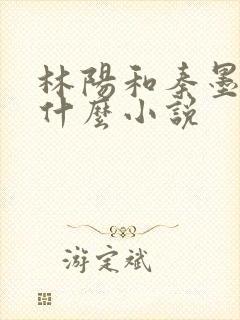 林陽和秦墨
什麼小說
游定斌